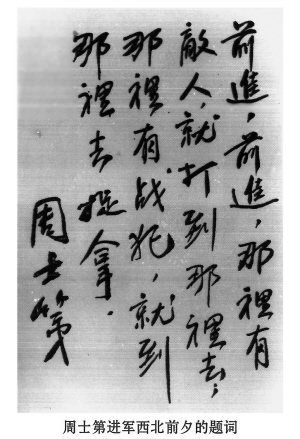 前進，前進，那裡有
敵人，就打到那裡去，
那裡有战犯，就到
那裡去捉拿．
周士第
周士第进军西北前夕的题词